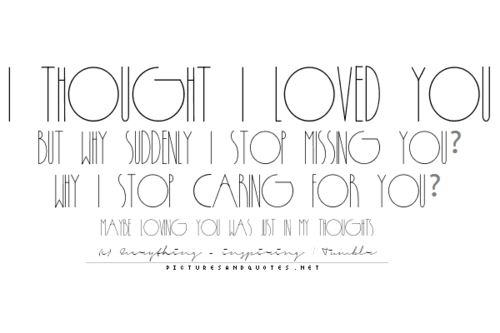 I THOUGHT I LOVED YOU
BUT WHY SUDDENLY I STOP MISSING YOU?
WHY I STOP CARING FOR YOU?
MAYBE LOVING YOU WAS JUST IN MY THOUGHTS
(c) Everything - inspiring | Tumblr
PICTURESANDQUOTES.NET